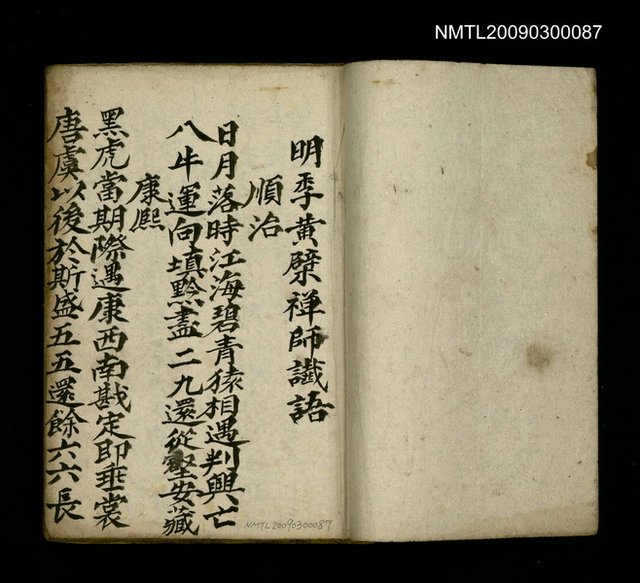 NMTL20090300087
明季黄檗禅師讖語
順治
日月落時江海碧青猿相遇判興亡
八牛運向填黔盡二九還從壑安藏
康熙
黑虎當期際遇康西南戡定即垂裳
唐虞以後於斯盛五五還餘六六長
NMTL20090300087